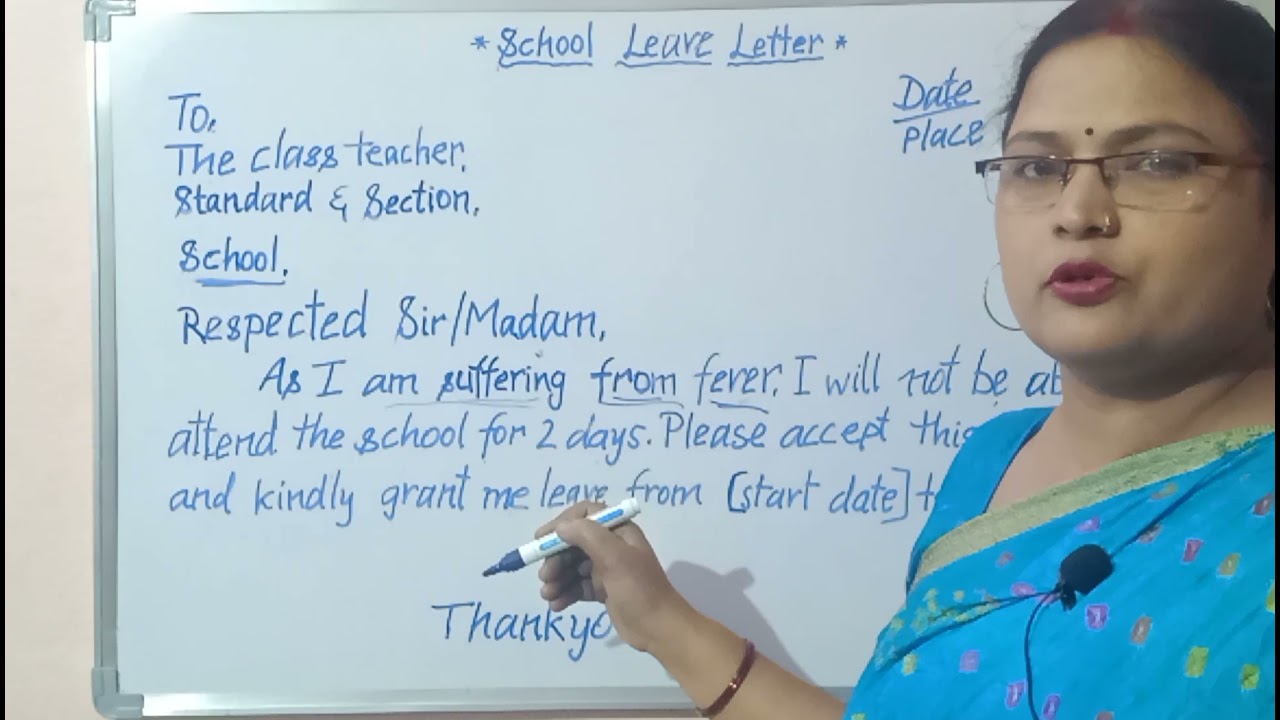 * School Leave Letter *
Date
Place
To,
The class teacher,
Standard & Section,
School,
Respected Sir/Madam,
As I am suffering from fever, I will not be
attend the school for 2 days. Please accept this
and kindly grant me leave from [start date]